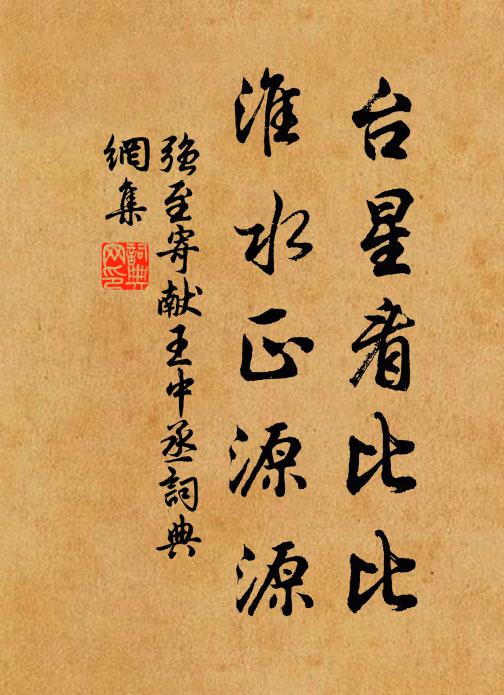 台星看比比
淮水正源源
強至寄献王中丞詞典
網集
詞典
网印